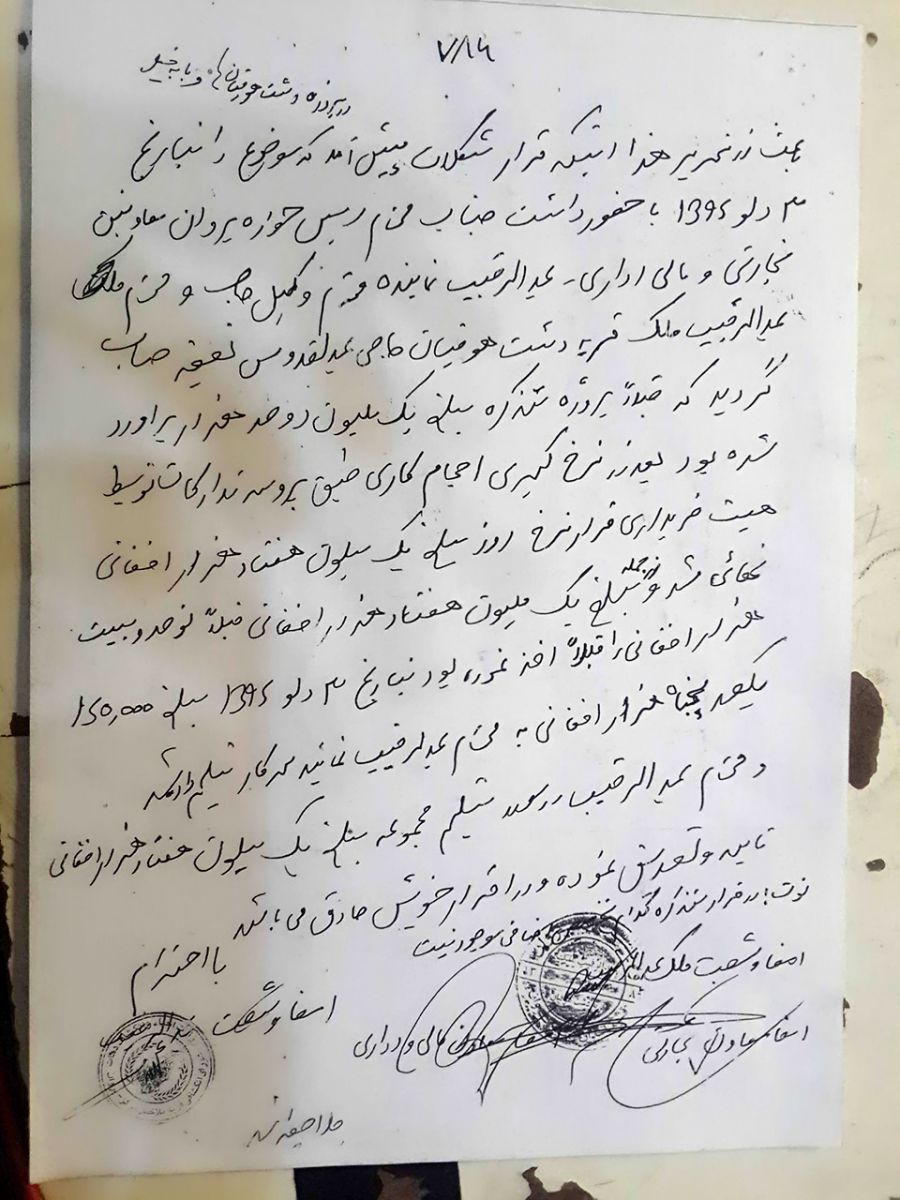 ۷/۸۶
در پروژه دشت هوفیان ها و بابه خیل
باعث از تحریر هذا اینکه قرار مشکلات پیش آمد که موضوع را بتاریخ
۳ دلو 1395 با حضور داشت جناب محترم رییس حوزه پروان معاونین
تجارتی و مالی اداری - عبدالرقیب نماینده محترم وکیل صاحب و محترم ملک
عبدالرقیب ملک قریه دشت هوفیان حاجی عبدالقدوس تصفیه حساب
گردید که قبلاً پروژه متذکره مبلغ یک ملیون دوصد هزار براورد
شده بود بعد از نرخ گیری احجام کاری طبق پروسه تدارکات توسط
هیت خریداری قرار نرخ روز مبلغ یک میلیون هفتاد هزار افغانی
نهائی شد از جمله مبلغ یک ملیون هفتاد هزار افغانی قبلاً نوصد و بیست
هزار افغانی را قبلاً اخذ نموده بود بتاریخ ۳ دلو 1395 مبلغ 150,000
یکصد پنجاه هزار افغانی به محترم عبدالرقیب نماینده تسلیم داده شد
و محترم عبدالرقیب رسید تسلیم مجموعه مبلغ یک میلیون هفتاد هزار افغانی
تایید و تصدیق نموده و در اقرار خویش صادق می باشد
نوت: در قرار متذکره اضافی موجود نیست
با احترام
امضا و شصت ملک
امضا و شصت
امضا معاون تجارتی
معاون مالی و اداری